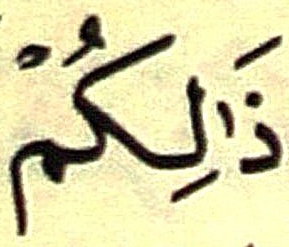 ذَالِكُمْ